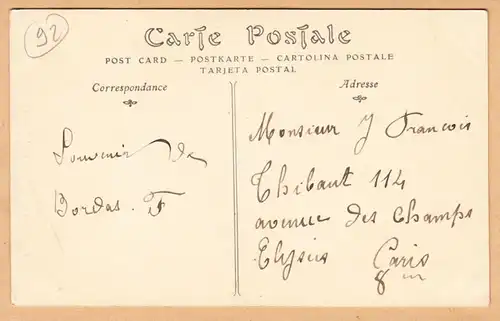 92
Carte Postale
POST CARD — POSTKARTE — CARTOLINA POSTALE
TARJETA POSTAL
Correspondance
Adresse
Souvenir de
Bordas. F
Monsieur J François
Thibaut 114
avenue des Champs
Elysées Paris
8